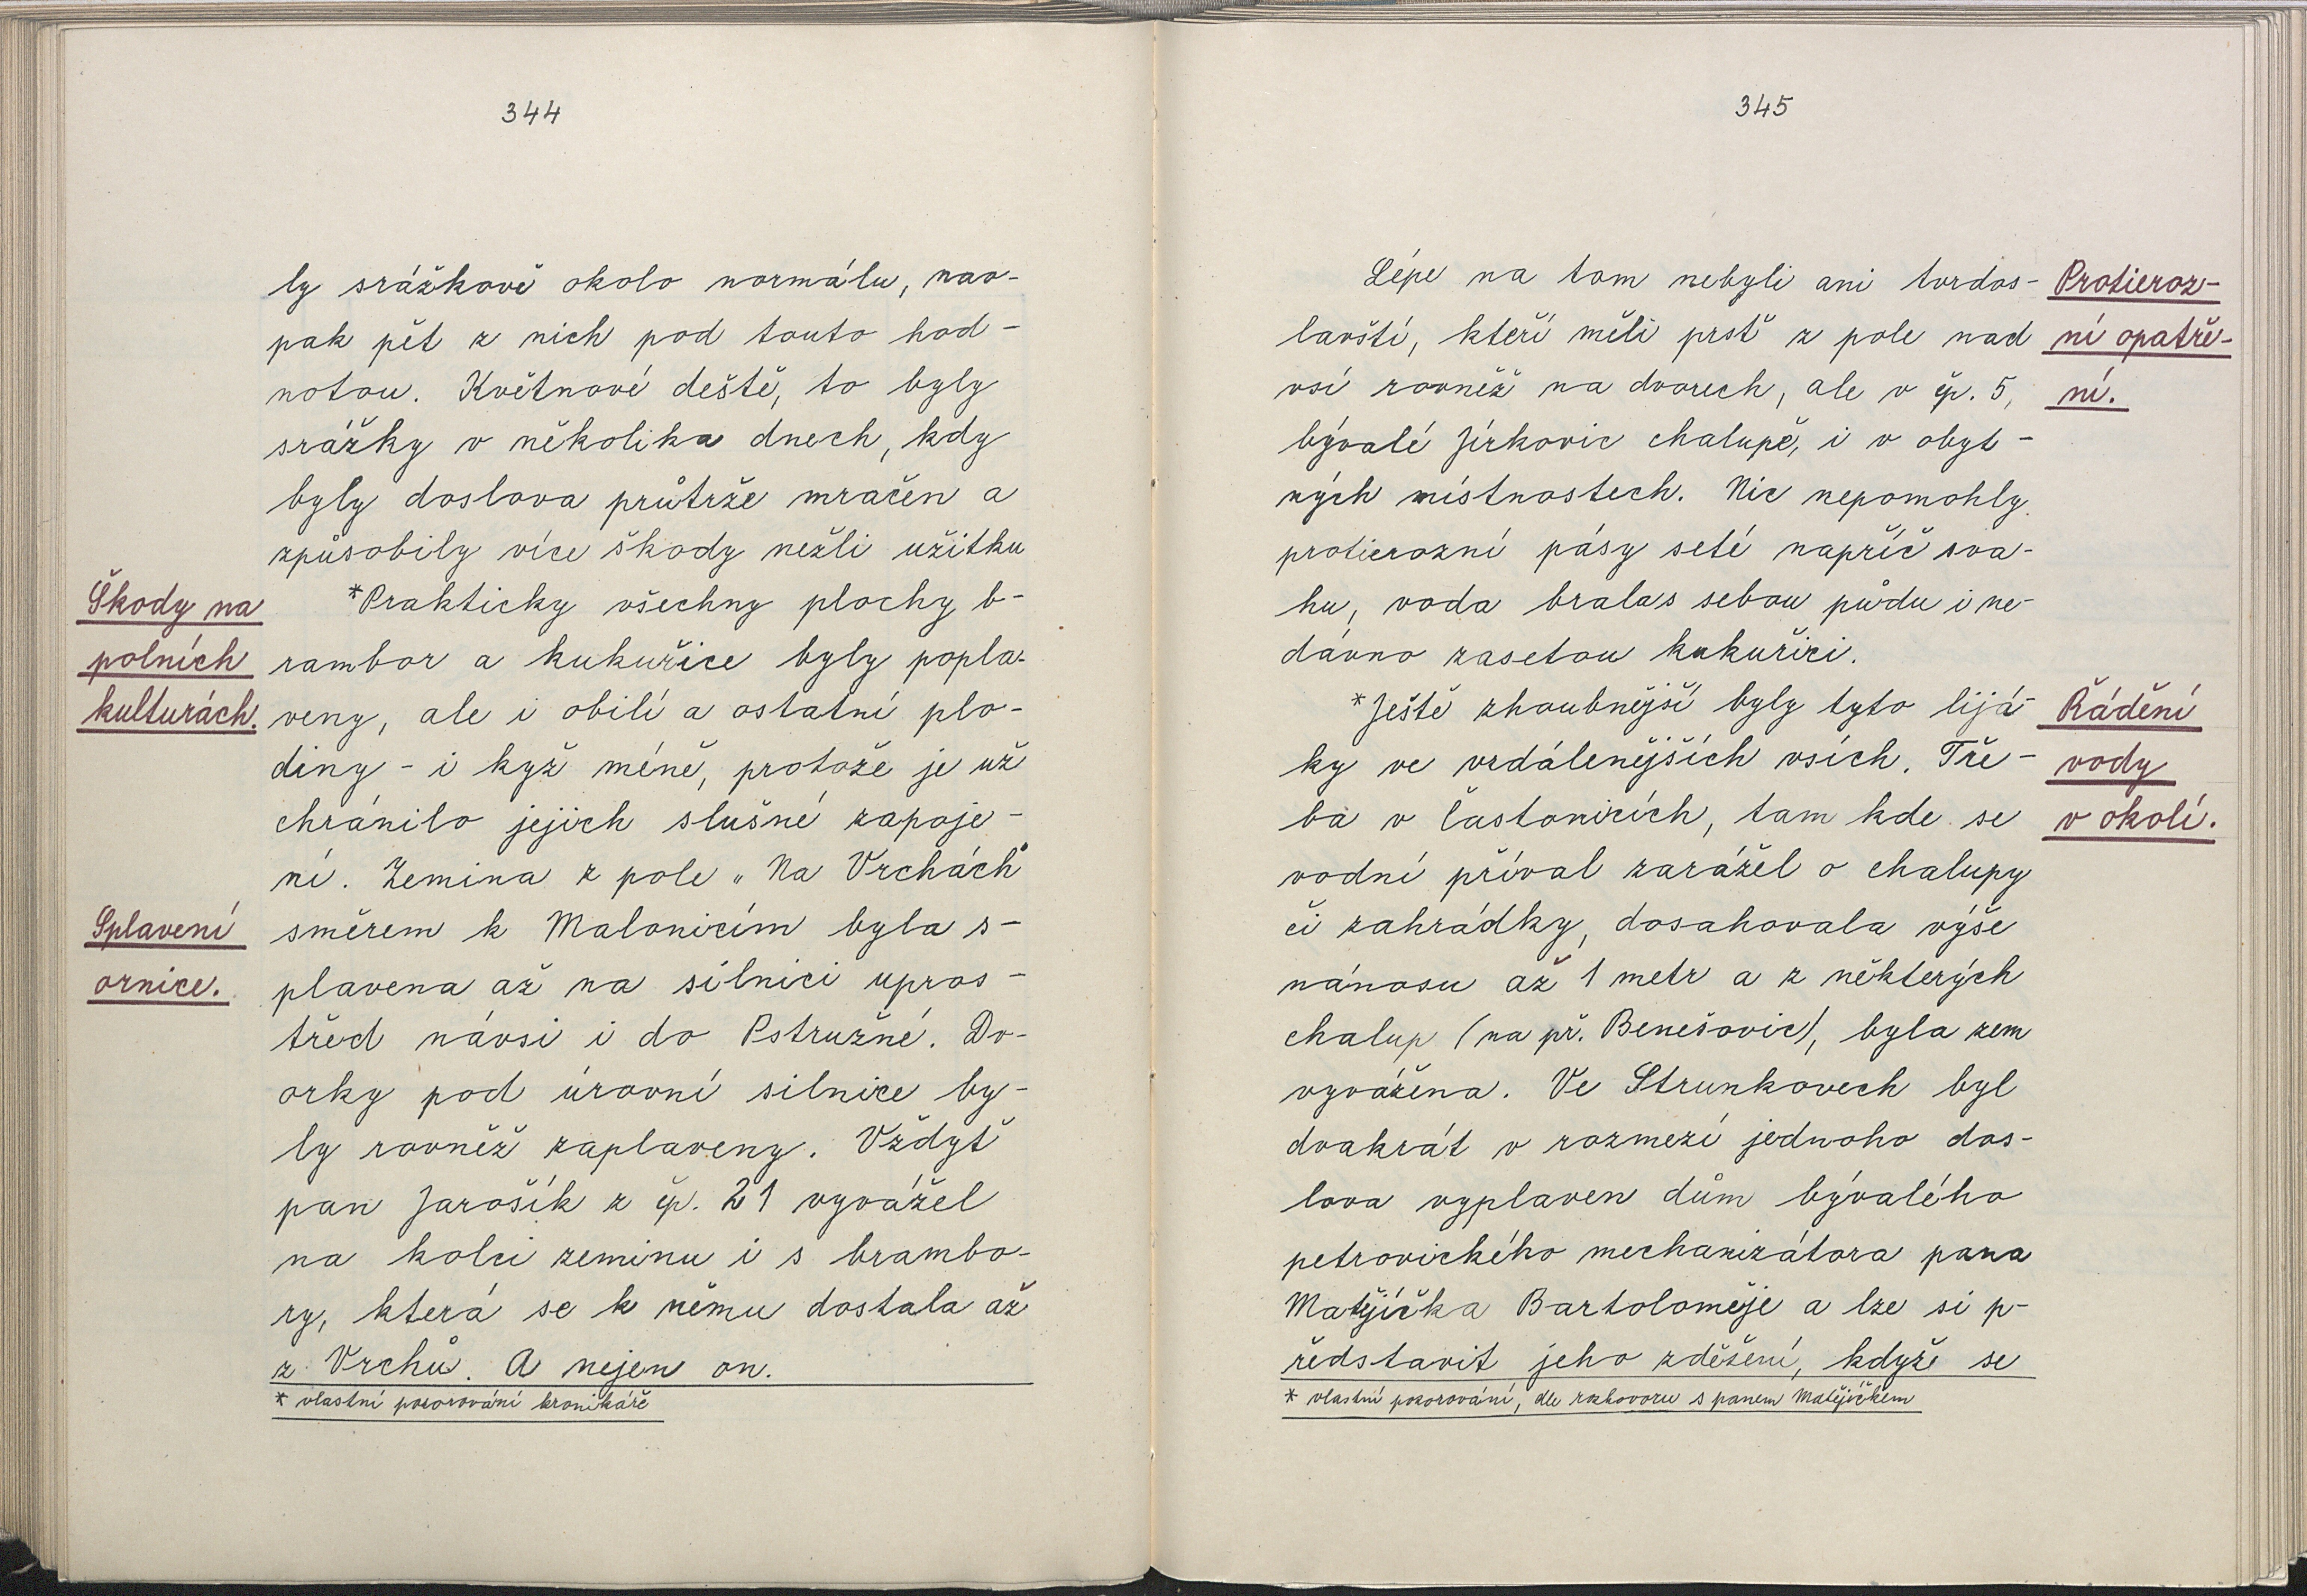 344
ly srážkově okolo normálu, nao-
pak pět z nich pod touto hod-
notou. Květnové deště, to byly
srážky v několika dnech, kdy
byly doslova průtrže mračen a
způsobily více škody nežli užitku
Škody na
polních
kulturách.
*Prakticky všechny plochy b-
rambor a kukuřice byly popla-
veny, ale i obilí a ostatní plo-
diny - i kyž méně, protože je už
chránilo jejich slušné zapoje-
ní. Zemina z pole „Na Vrchách"
Splavení
ornice.
směrem k Malonicím byla s-
plavena až na silnici upros-
třed návsi i do Pstružné. Dv-
orky pod úrovní silnice by-
ly rovněž zaplaveny. Vždyť
pan Jarošík z čp. 21 vyvážel
na kolci zeminu i s brambo-
ry, která se k němu dostala až
z Vrchů. A nejen on.
* vlastní pozorování kronikáře
345
Lépe na tom nebyli ani tvrdos-
lavští, kteří měli prsť z pole nad
vsí rovněž na dvorech, ale v čp. 5,
bývalé Jírkovic chalupě, i v obyt-
ných místnostech. Nic nepomohly
protierozní pásy seté napříč sva-
hu, voda brala s sebou půdu i ne-
dávno zasetou kukuřici.
Protieroz-
ní opatře-
ní.
*Ještě zhoubnější byly tyto lijá-
ky ve vzdálenějších vsích. Tře-
ba v Častonicích, tam kde se
vodní příval zarážel o chalupy
či zahrádky, dosahovala výše
nánosu až 1 metr a z některých
chalup (na př. Benešovic), byla zem
vyvážena. Ve Strunkovech byl
dvakrát v rozmezí jednoho dos-
lova vyplaven dům bývalého
petrovického mechanizátora pana
Matějíčka Bartoloměje a lze si p-
ředstavit jeho zděšení, kdyže se
Řádění
vody
v okolí.
* vlastní pozorování, dle rozhovoru s panem Matějíčkem